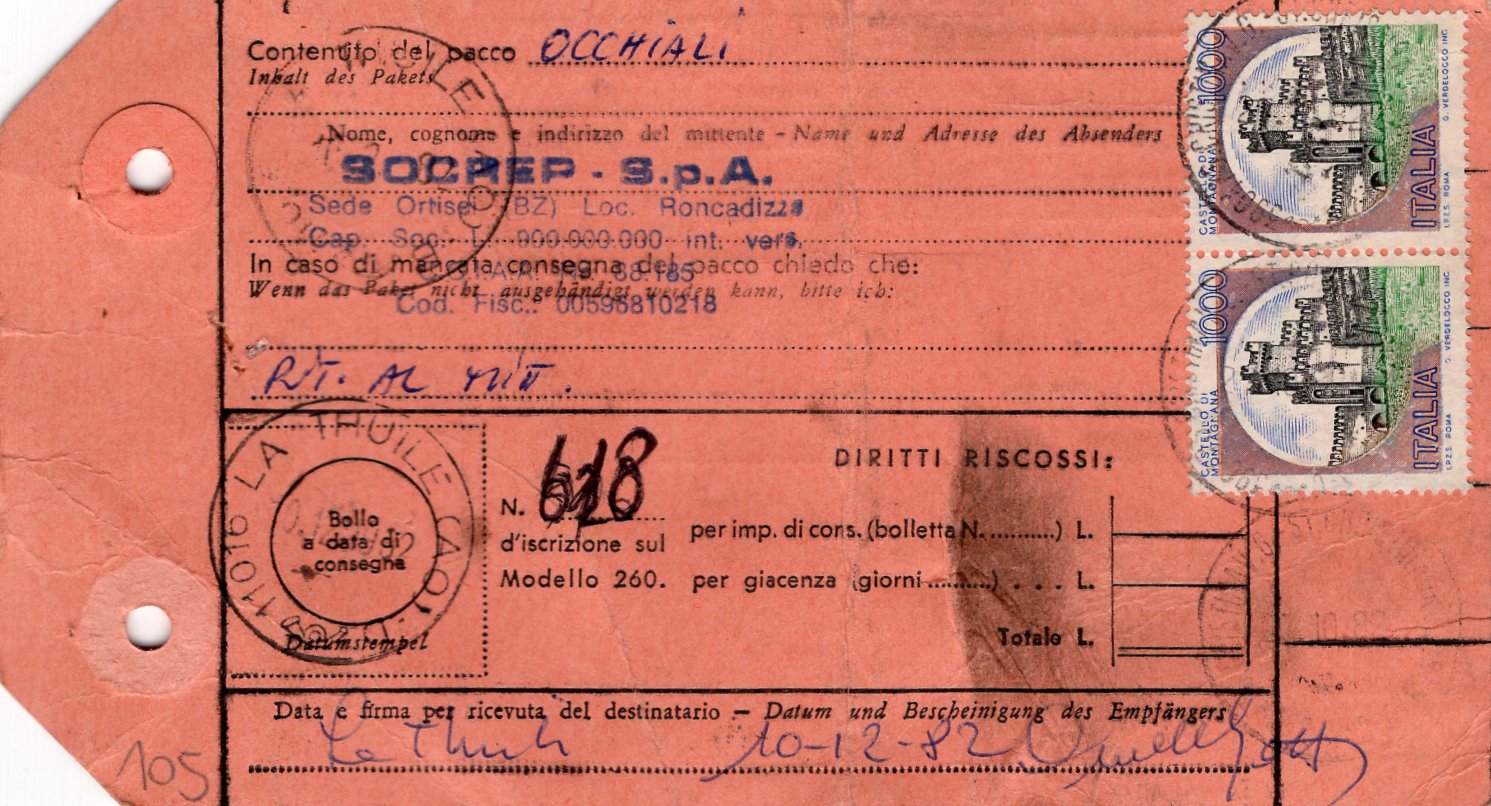 Contenuto del pacco OCCHIALI
Inhalt des Pakets
Nome, cognome e indirizzo del mittente - Name und Adresse des Absenders
SOCREP - S.p.A.
Sede Ortisei (BZ) Loc. Roncadizza
Cap. Soc. L. 900.000.000 int. vers.
In caso di mancata consegna del pacco chiedo che:
68.185
Wenn das Paket nicht ausgehändigt werden kann, bitte ich:
Cod. Fisc.: 00596810218
RIT. AL MITT.
1000
CASTELLO DI
MONTAGNANA
ITALIA
I.P.Z.S. ROMA
G. VERDELOCCO INC.
1000
CASTELLO DI
MONTAGNANA
ITALIA
I.P.Z.S. ROMA
G. VERDELOCCO INC.
11016 LA THUILE (AO)
Bollo
a data di
consegna
Datumstempel
N. 618
d'iscrizione sul
Modello 260.
DIRITTI RISCOSSI:
per imp. di cons. (bolletta N. ...........) L.
per giacenza (giorni ..........) . . . L.
Totale L.
Data e firma per ricevuta del destinatario — Datum und Bescheinigung des Empfängers
La Thuile 10-12-82
105